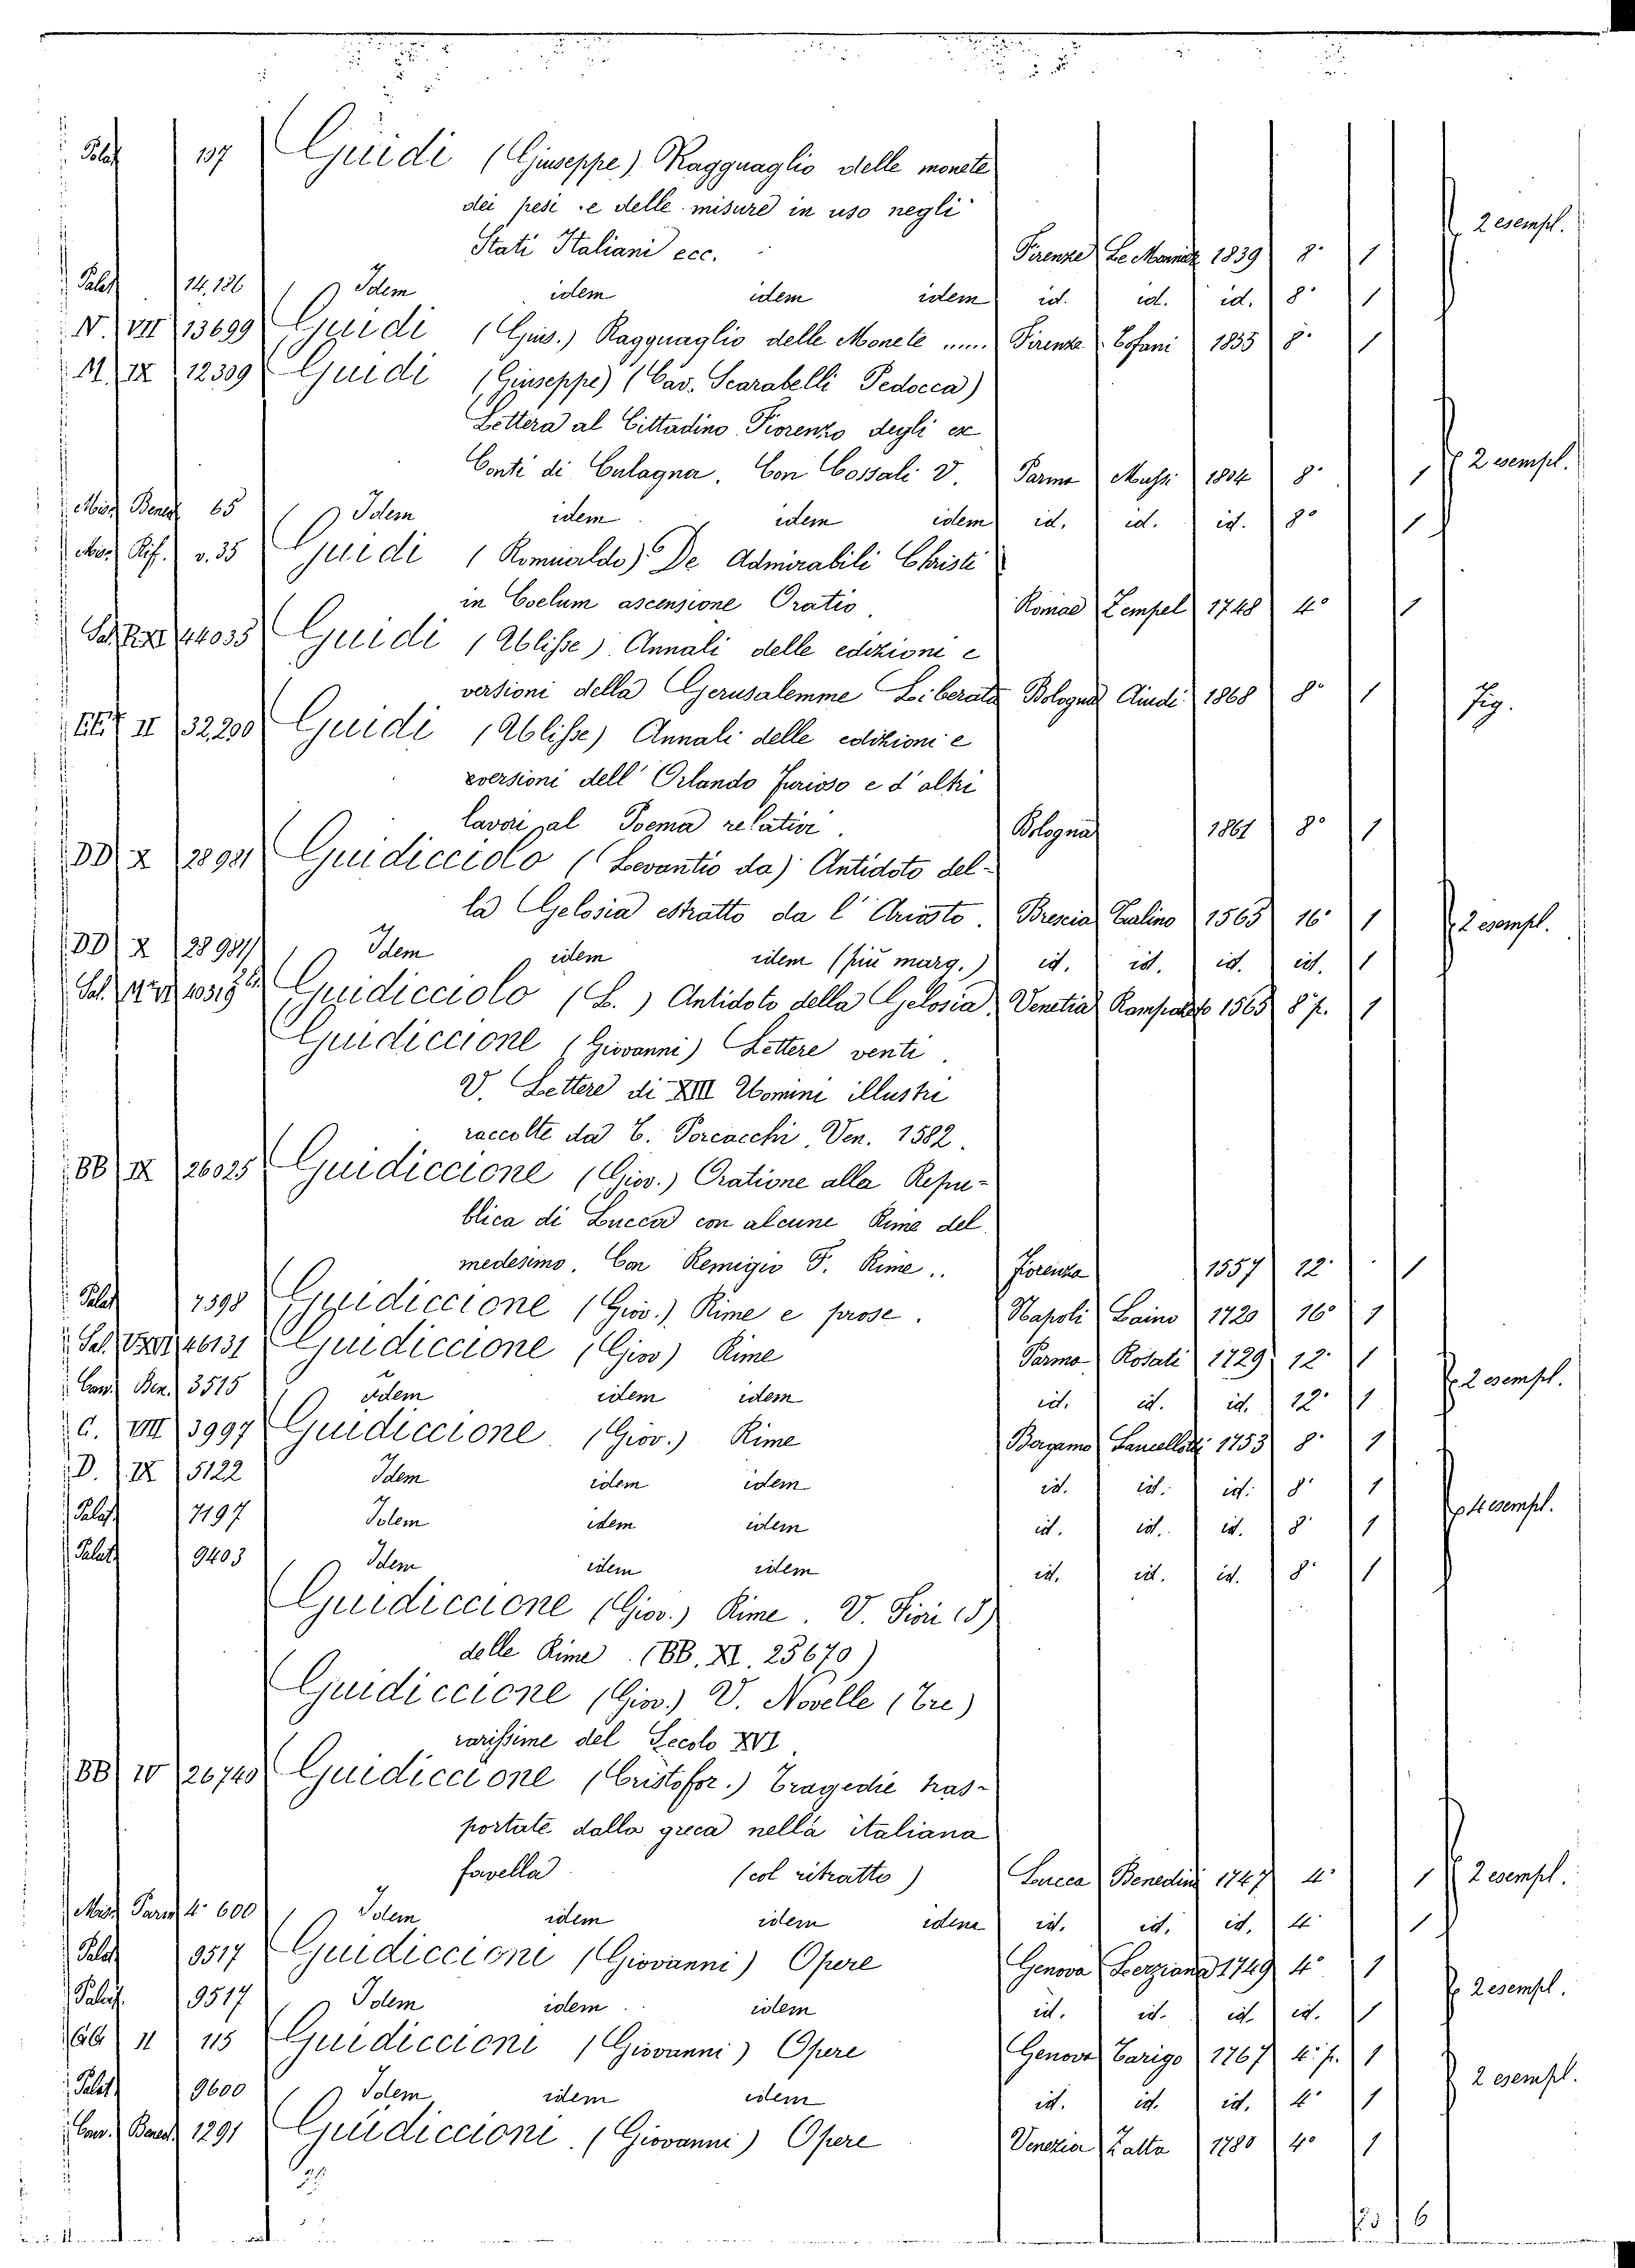 Palat 137 Guidi (Giuseppe) Ragguaglio delle monete
dei pesi e delle misure in uso negli 2 esempl.
Stati Italiani ecc. Firenze Le Monnier 1839 8° 1
Palat 14,126 Idem idem idem idem id. id. id. 8° 1
N. VII 13699 Guidi (Gius.) Ragguaglio delle Monete ..... Firenze Cofani 1855 8° 1
M. IX 12309 Guidi (Giuseppe) (Cav. Scarabelli Pedocca)
Lettera al Cittadino Fiorenzo degli ex
Conti di Culagna. Con Cossali V. Parma Mussi 1804 8° 1 2 esempl.
Misc Bened 65 Idem idem idem idem id. id. id. 8° 1
Misc Rif. v. 35 Guidi (Romualdo) De Admirabili Christi
in Coelum ascensione Oratio. Romae Zempel 1748 4° 1
44035 Guidi (Ulisse) Annali delle edizioni e
versioni della Gerusalemme Liberata Bologna 1868 8° 1 Fig.
II 32,200 Guidi (Ulisse) Annali delle edizioni e
versioni dell'Orlando Furioso e d'altri
lavori al Poema relativi. Bologna 1861 8° 1
DD X 28981 Guidicciolo (Levantio da) Antidoto del-
la Gelosia estratto da l'Ariosto. Brescia 1565 16° 1 2 esempl.
DD X 28981 Idem idem idem (più marg.) id. id. id. id. 1
Sal. 40319 Guidicciolo (L.) Antidoto della Gelosia Venetia 1565 8° p. 1
Guidiccione (Giovanni) Lettere venti.
V. Lettere di XIII Uomini illustri
raccolte da T. Porcacchi Ven. 1582.
BB IX 26025 Guidiccione (Giov.) Oratione alla Repu-
blica di Lucca con alcune Rime del
medesimo. Con Remigio F. Rime.. Fiorenza 1557 12° 1
Palat 7598 Guidiccione (Giov.) Rime e prose. Napoli Laino 1720 16° 1
Sal. 46131 Guidiccione (Giov) Rime Parma Rosati 1729 12° 1
Cam. Ben. 3515 Idem idem idem id. id. id. 12° 1 2 esempl.
C. VIII 3997 Guidiccione (Giov.) Rime Bergamo Lancellotti 1753 8° 1
D. IX 5122 Idem idem idem id. id. id. 8° 1
Palat. 7197 Idem idem idem id. id. id. 8° 1 4 esempl.
Palat 9403 Idem idem idem id. id. id. 8° 1
Guidiccione (Giov.) Rime. V. Fiori (I)
delle Rime (BB. XI. 25670)
Guidiccione (Giov.) V. Novelle (Tre)
rarissime del Secolo XVI
BB IV 26740 Guidiccione (Cristofor.) Tragedie tras-
portate dalla greca nella italiana
favella (col ritratto) Lucca Benedini 1747 4° 1 2 esempl.
Misc Parm 4° 600 Idem idem idem idem id. id. id. 4° 1
Palat 9517 Guidiccioni (Giovanni) Opere Genova 1749 4° 1
Palat. 9517 Idem idem idem id. id. id. id. 1 2 esempl.
II 115 Guidiccioni (Giovanni) Opere Genova Tarigo 1767 4° p. 1
Palat. 9600 Idem idem idem id. id. id. 4° 1 2 esempl.
Cam. Bened. 1291 Guidiccioni. (Giovanni) Opere Venezia Zatta 1780 4° 1
6